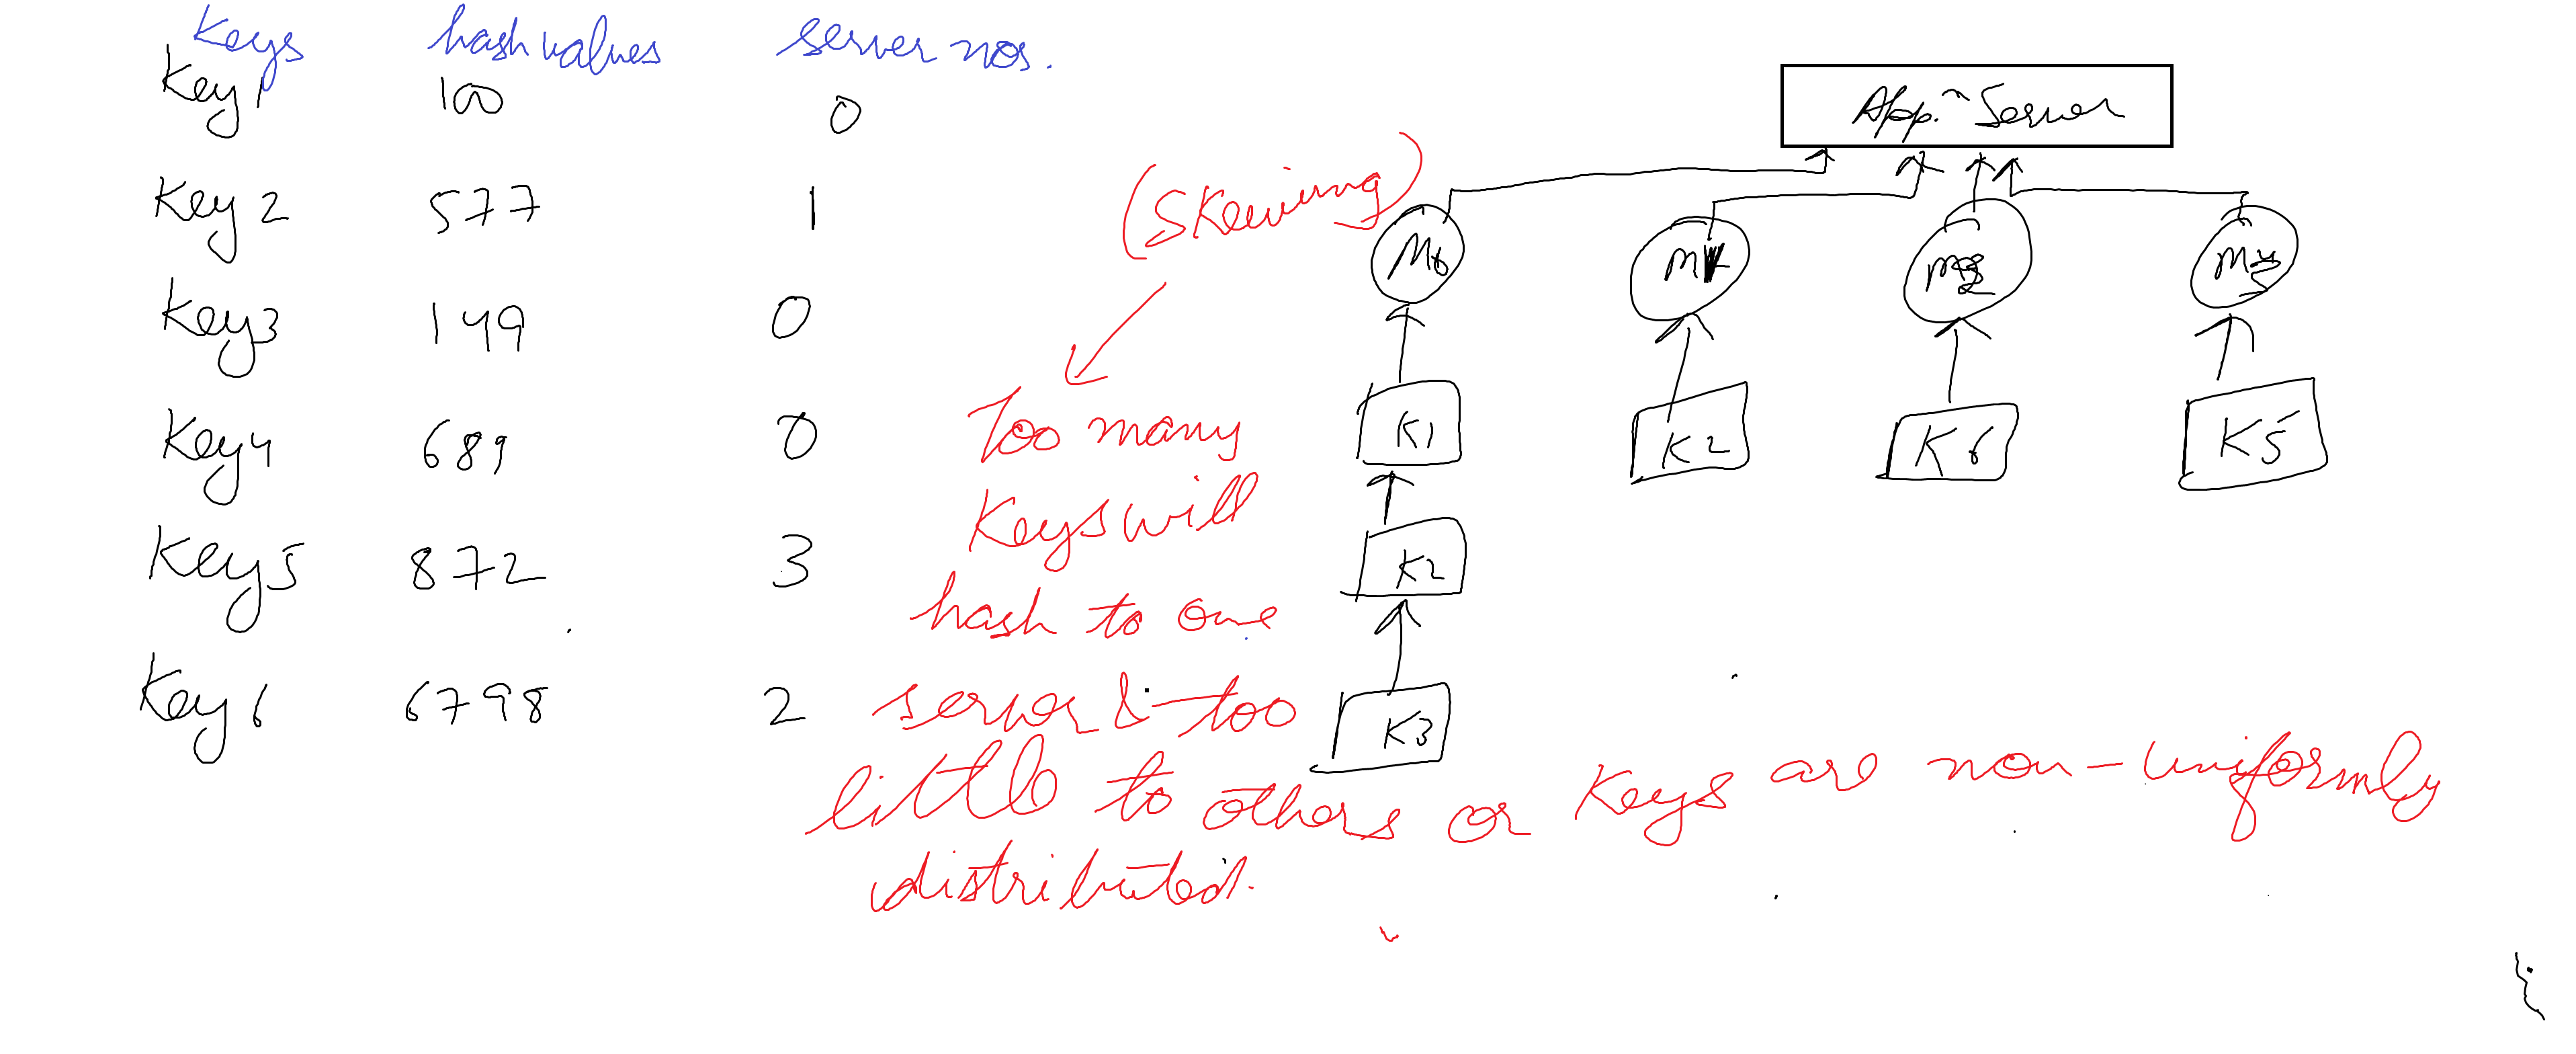 Keys hash values server nos.
Key1 100 0
Key2 577 1
Key3 149 0
Key4 689 0
Key5 872 3
Key6 6798 2
(Skewing)
Too many
Keys will
hash to one
server & too
little to others or Keys are non-uniformly
distributed.
Appn Server
M0
K1 K2 K6 K5
K2
K3